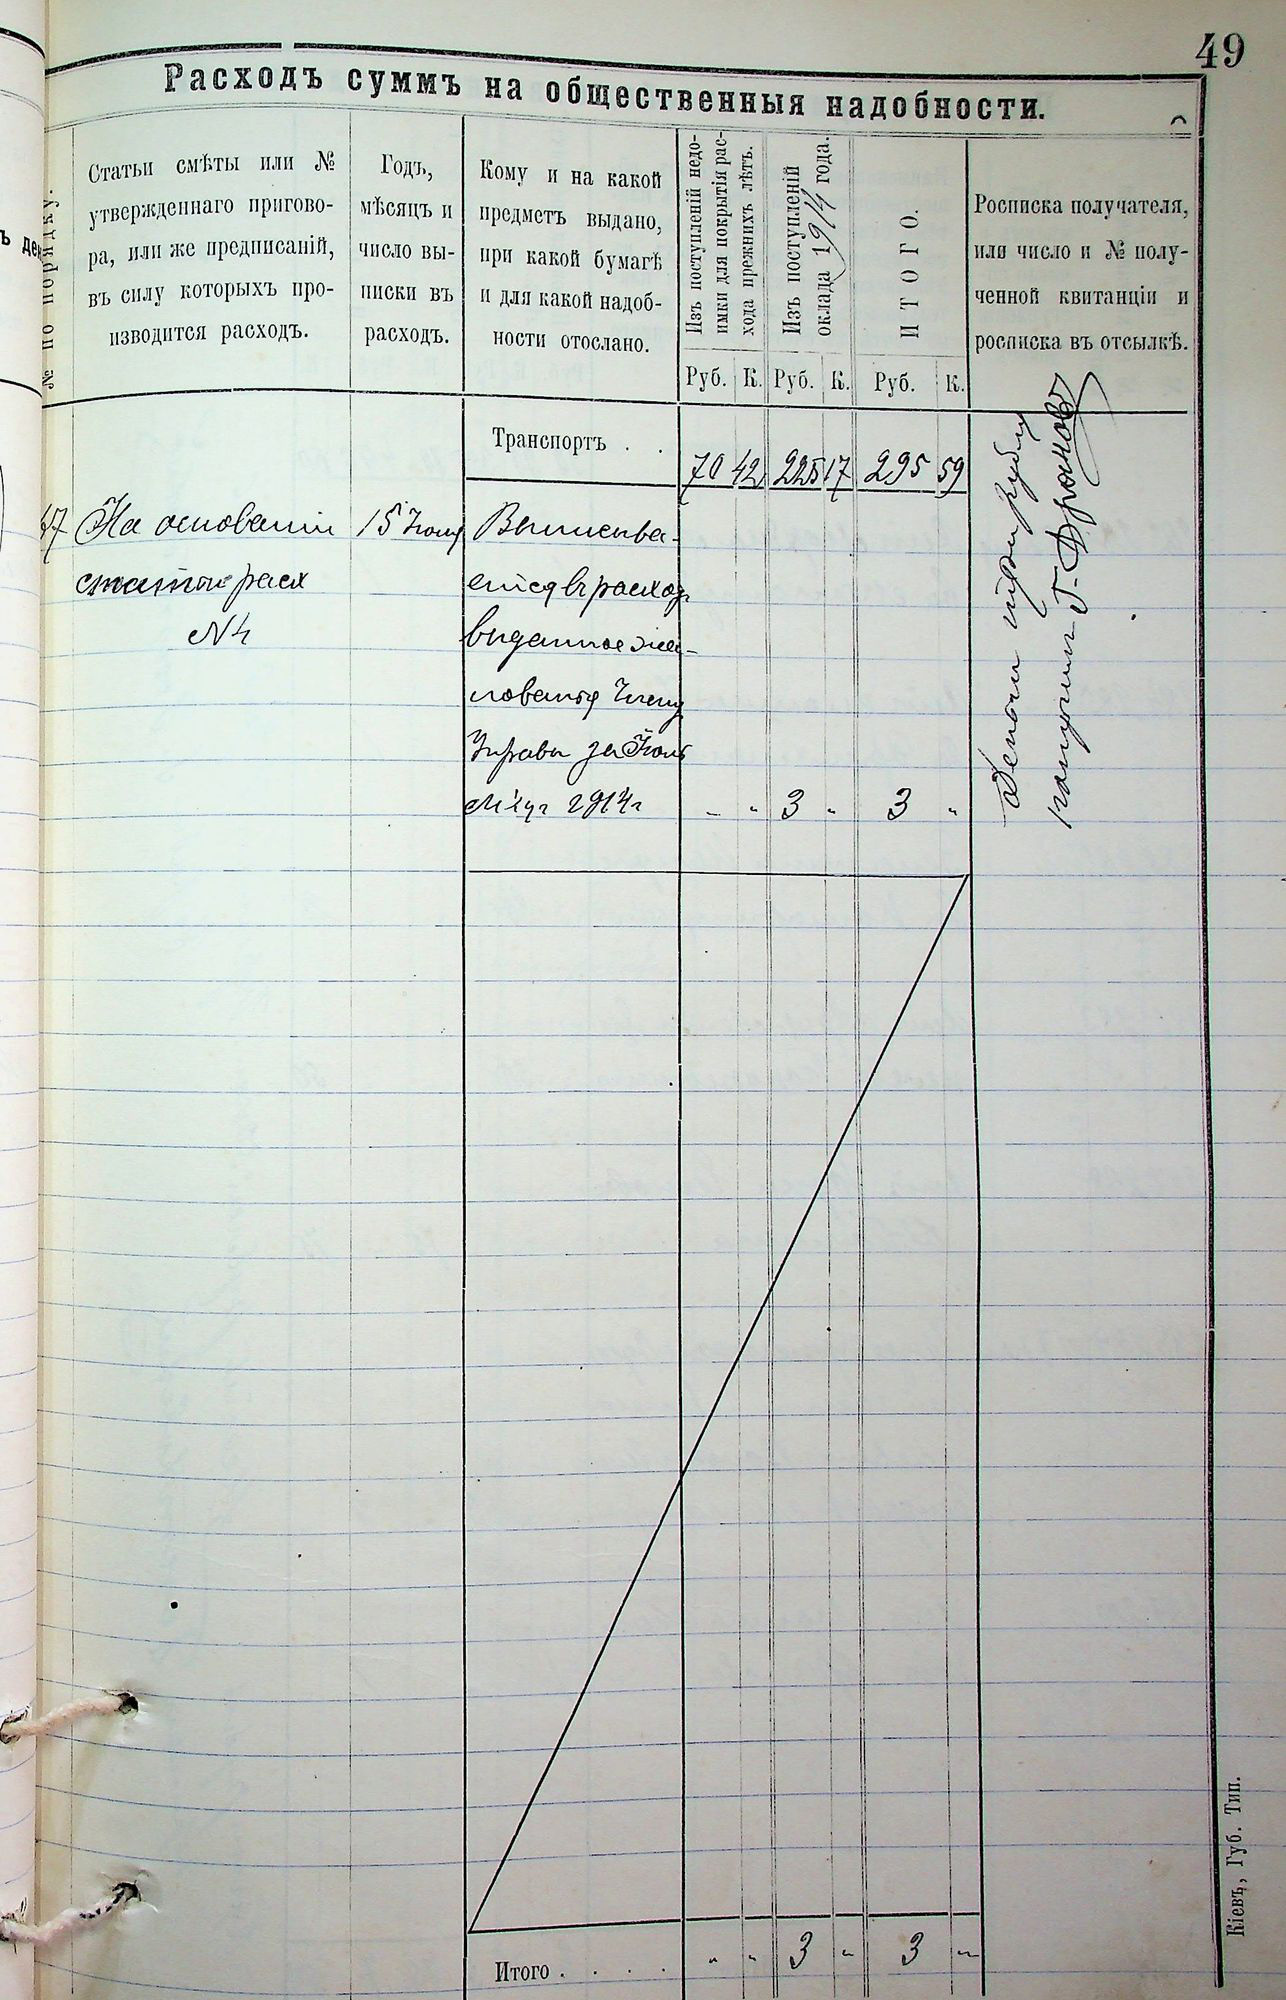 49
Расходъ суммъ на общественныя надобности.
№ по порядку.
Статьи смѣты или №
утвержденнаго пригово-
ра, или же предписаній,
въ силу которыхъ про-
изводится расходъ.
Годъ,
мѣсяцъ и
число вы-
писки въ
расходъ.
Кому и на какой
предметъ выдано,
при какой бумагѣ
и для какой надоб-
ности отослано.
Изъ поступленій недо-
имки для покрытія рас-
хода прежнихъ лѣтъ.
Изъ поступленій
оклада 1914 года.
ИТОГО.
Росписка получателя,
или число и № полу-
ченной квитанціи и
росписка въ отсылкѣ.
Руб. К. Руб. К. Руб. К.
Транспортъ . . 70 42 225 17 295 59
На основаніи
статьи расх
№ 4
15 Іюля
Выписыва-
ется въ расходъ
выданное жа-
лованья Члену
Управы за Іюль
М-цъ 1914 г
- " 3 " 3 "
Деньги три рубля
получилъ Г.
Итого . . . . " " 3 " 3 "
Кіевъ, Губ. Тип.